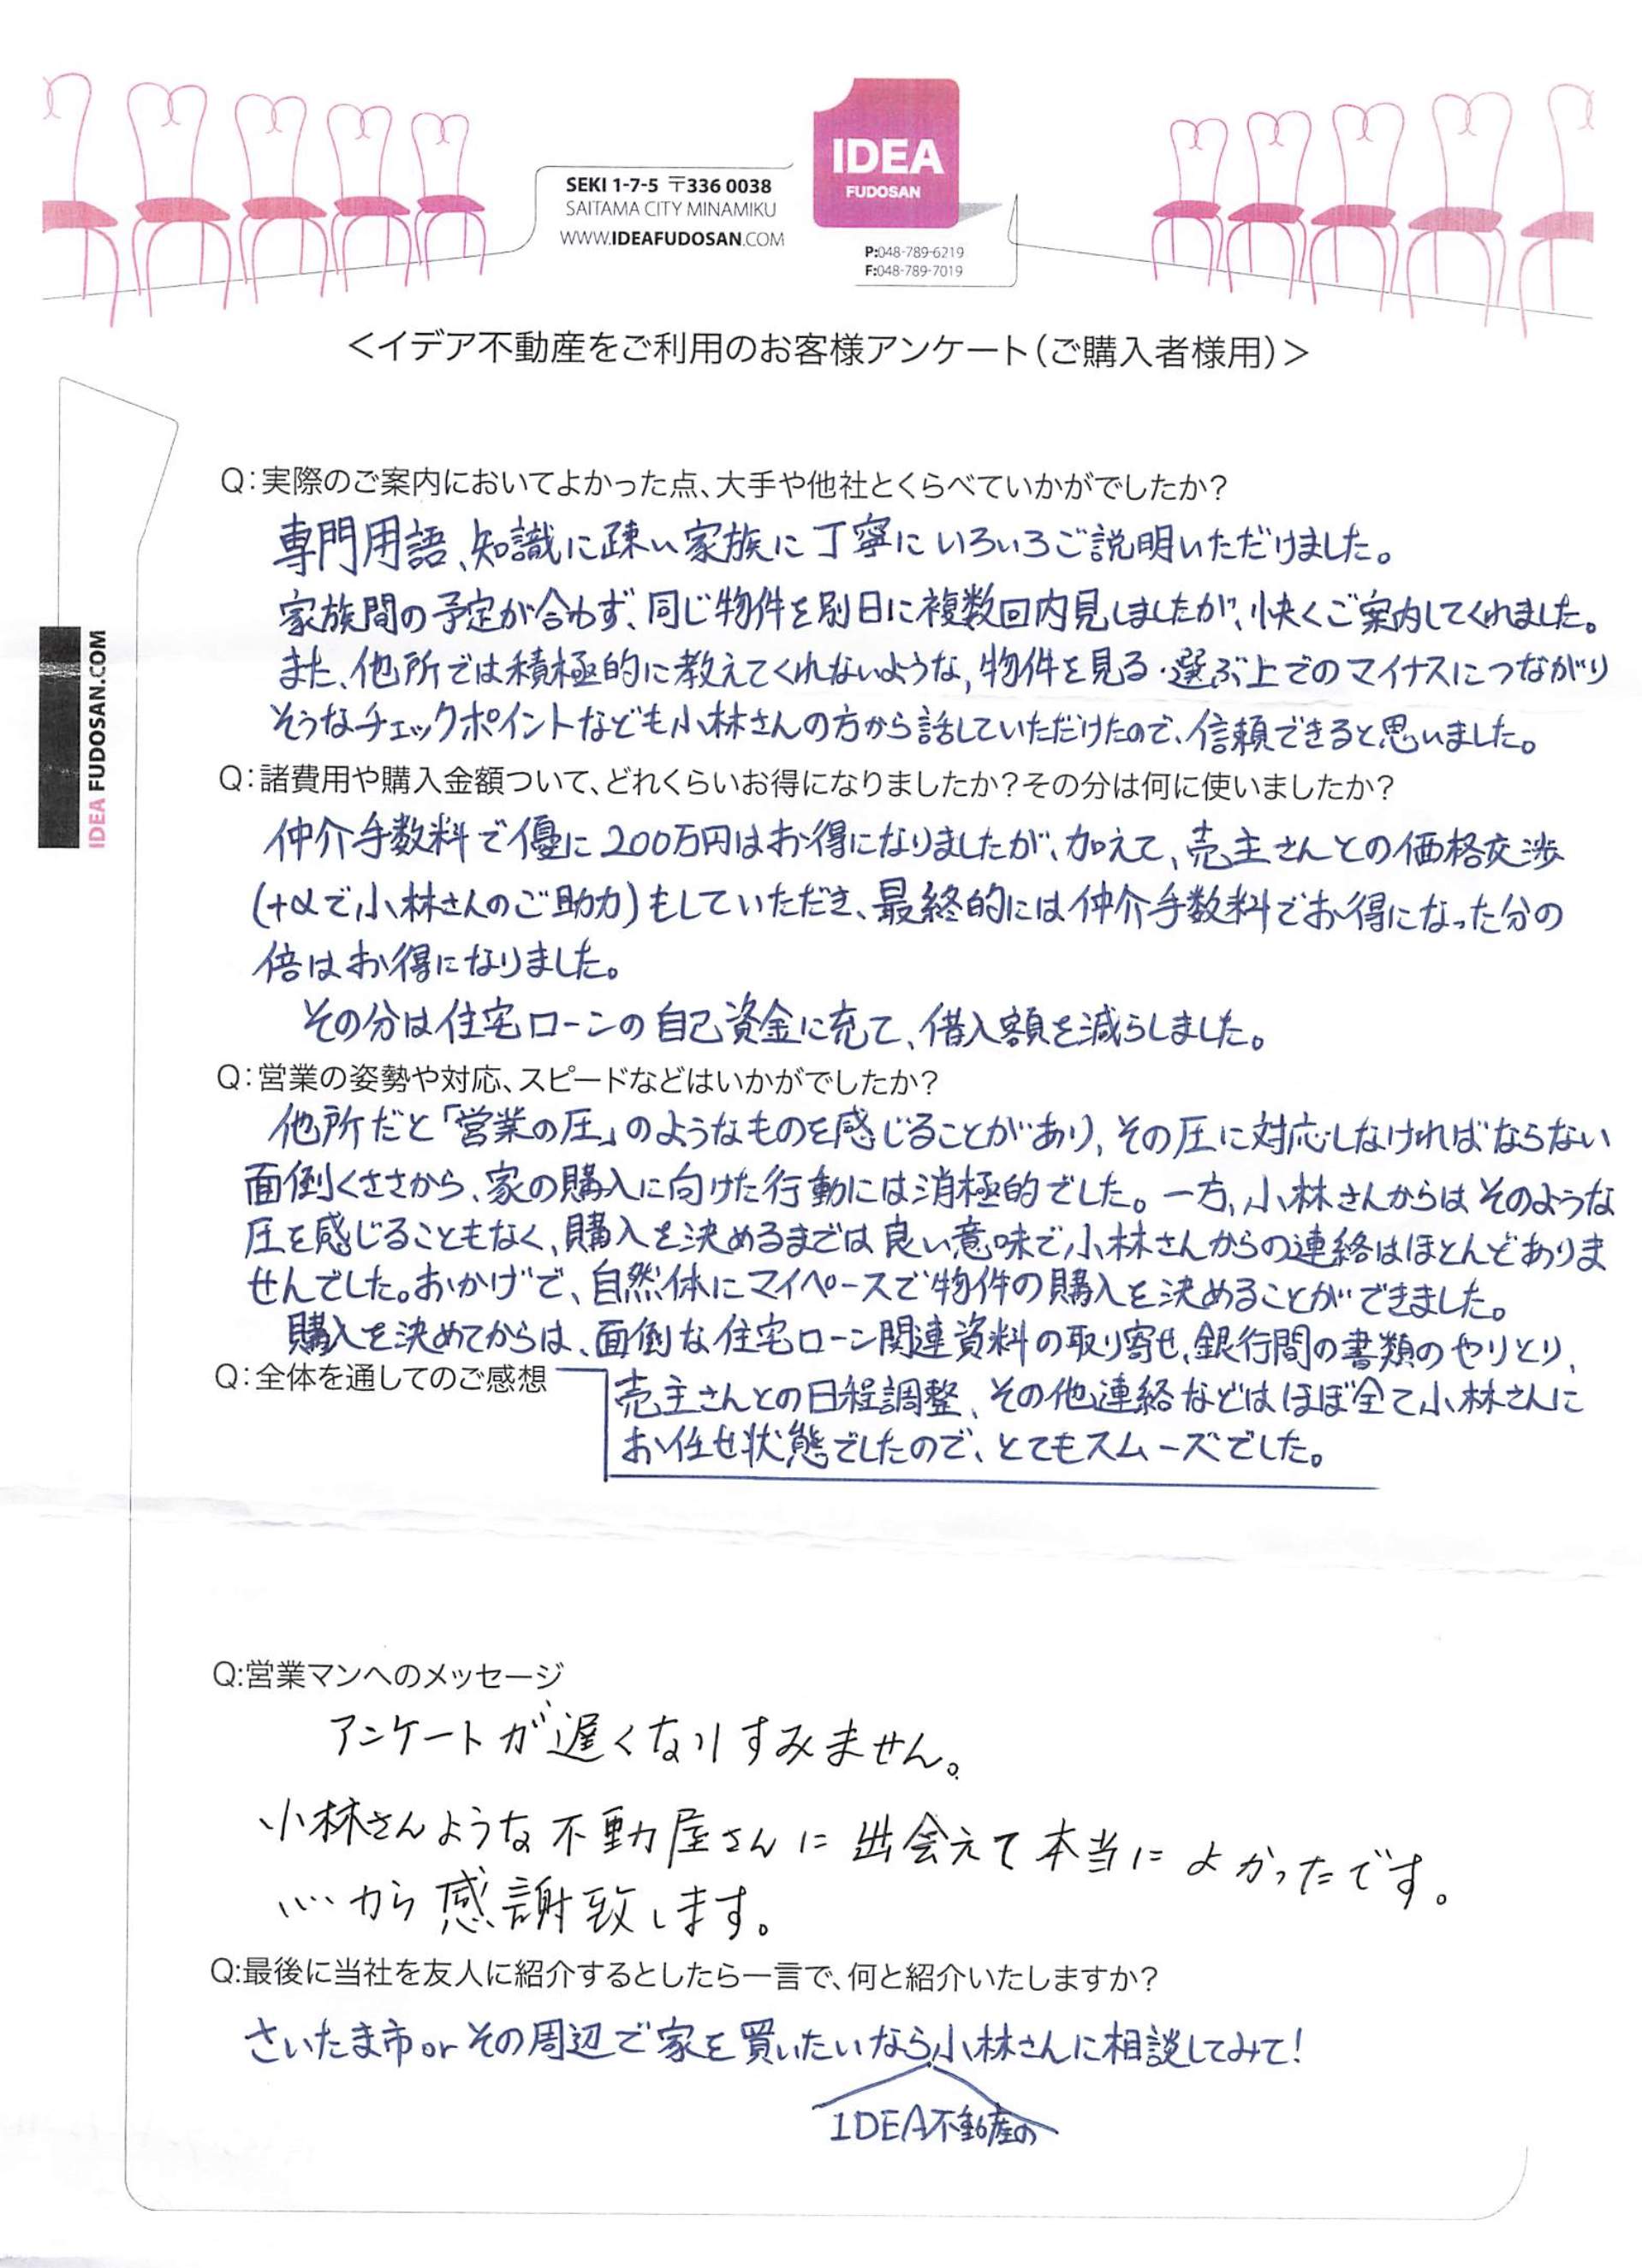 IDEA
FUDOSAN
SEKI 1-7-5 〒336 0038
SAITAMA CITY MINAMIKU
WWW.IDEAFUDOSAN.COM
P:048-789-6219
F:048-789-7019
＜イデア不動産をご利用のお客様アンケート（ご購入者様用）＞
IDEA FUDOSAN.COM
Q：実際のご案内においてよかった点、大手や他社とくらべていかがでしたか？
専門用語、知識に疎い家族に丁寧にいろいろご説明いただけました。
家族間の予定が合わず、同じ物件を別日に複数回内見しましたが、快くご案内してくれました。
また、他所では積極的に教えてくれないような、物件を見る・選ぶ上でのマイナスにつながり
そうなチェックポイントなども小林さんの方から話していただけたので、信頼できると思いました。
Q：諸費用や購入金額ついて、どれくらいお得になりましたか？その分は何に使いましたか？
仲介手数料で優に200万円はお得になりましたが、加えて、売主さんとの価格交渉
(+αで小林さんのご助力)もしていただき、最終的には仲介手数料でお得になった分の
倍はお得になりました。
その分は住宅ローンの自己資金に充て、借入額を減らしました。
Q：営業の姿勢や対応、スピードなどはいかがでしたか？
他所だと「営業の圧」のようなものを感じることがあり、その圧に対応しなければならない
面倒くささから、家の購入に向けた行動には消極的でした。一方、小林さんからはそのような
圧を感じることもなく、購入を決めるまでは良い意味で小林さんからの連絡はほとんどありま
せんでした。おかげで、自然体にマイペースで物件の購入を決めることができました。
購入を決めてからは、面倒な住宅ローン関連資料の取り寄せ、銀行間の書類のやりとり、
Q：全体を通してのご感想
売主さんとの日程調整、その他連絡などはほぼ全て小林さんに
お任せ状態でしたので、とてもスムーズでした。
Q:営業マンへのメッセージ
アンケートが遅くなりすみません。
小林さんような不動屋さんに出会えて本当によかったです。
心から感謝致します。
Q:最後に当社を友人に紹介するとしたら一言で、何と紹介いたしますか？
さいたま市orその周辺で家を買いたいなら小林さんに相談してみて!
IDEA不動産の